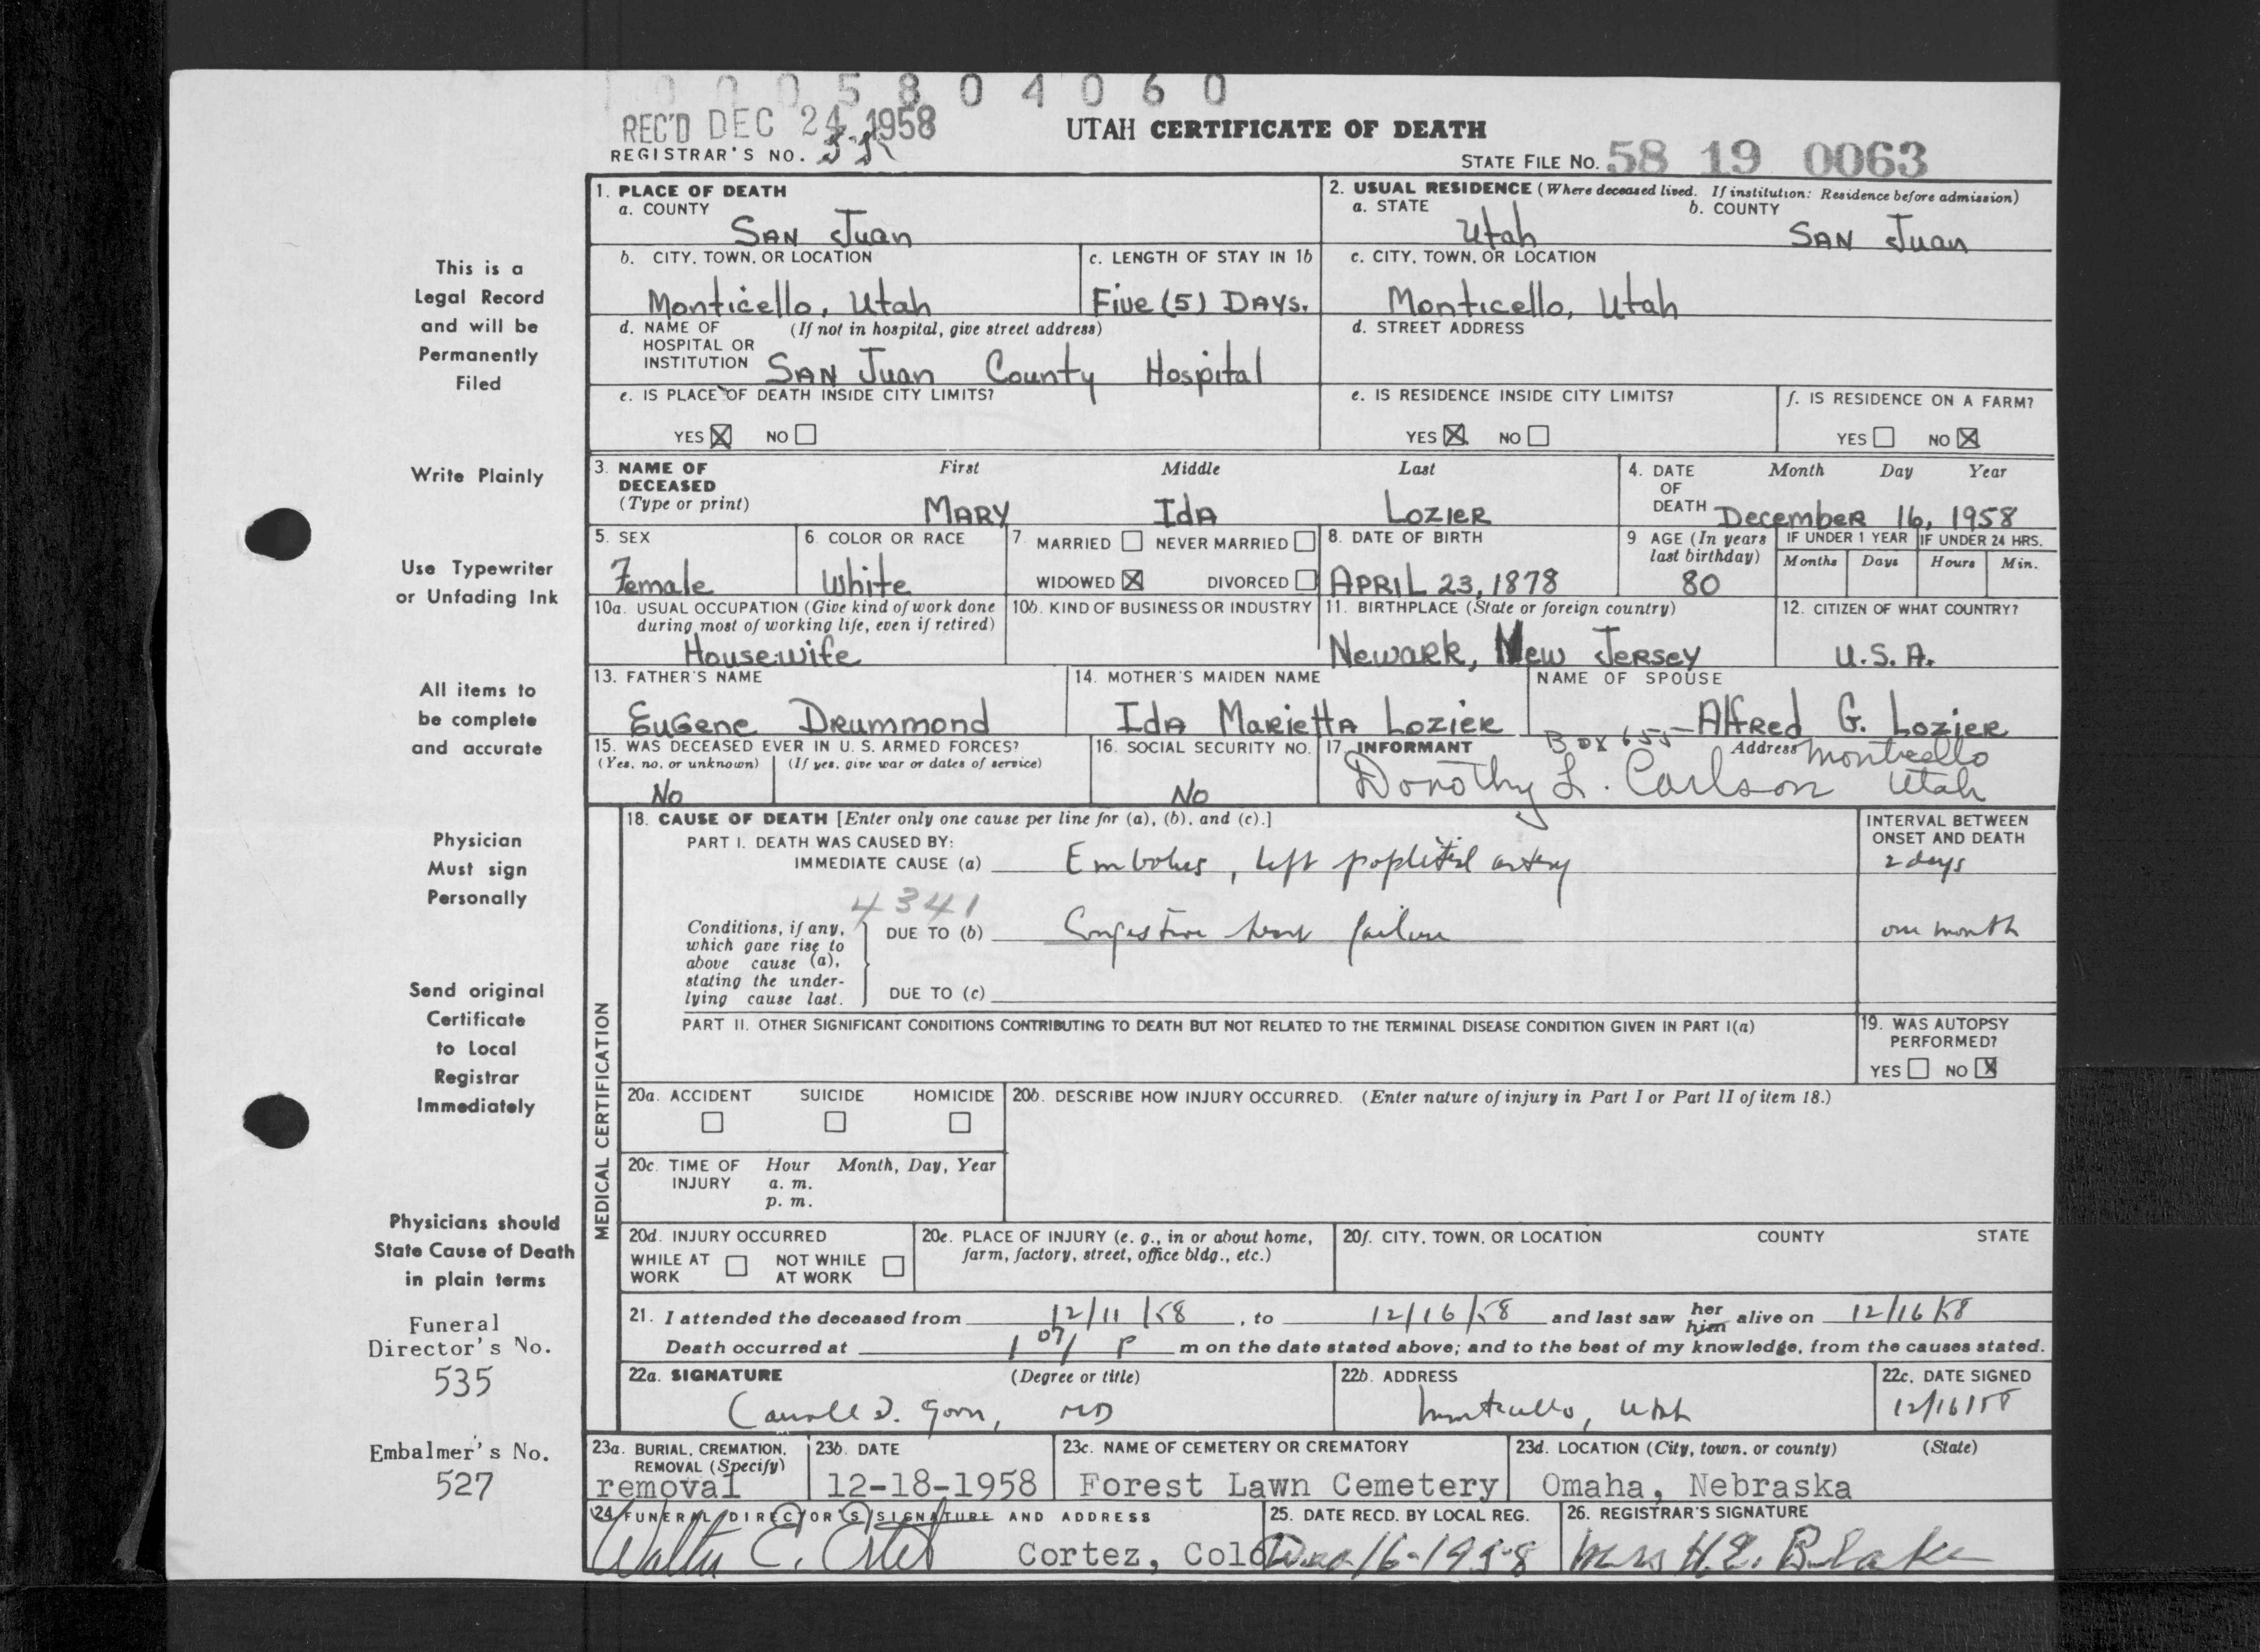 0005804060
REC'D DEC 24 1958
UTAH CERTIFICATE OF DEATH
REGISTRAR'S NO.
STATE FILE NO. 58 19 0063
This is a
Legal Record
and will be
Permanently
Filed
Write Plainly
Use Typewriter
or Unfading Ink
All items to
be complete
and accurate
Physician
Must sign
Personally
Send original
Certificate
to Local
Registrar
Immediately
Physicians should
State Cause of Death
in plain terms
Funeral
Director's No.
535
Embalmer's No.
527
1. PLACE OF DEATH
a. COUNTY
San Juan
2. USUAL RESIDENCE (Where deceased lived. If institution: Residence before admission)
a. STATE b. COUNTY
Utah San Juan
b. CITY, TOWN, OR LOCATION
Monticello, Utah
c. LENGTH OF STAY IN 1b
Five (5) Days.
c. CITY, TOWN, OR LOCATION
Monticello, Utah
d. NAME OF (If not in hospital, give street address)
HOSPITAL OR
INSTITUTION San Juan County Hospital
d. STREET ADDRESS
e. IS PLACE OF DEATH INSIDE CITY LIMITS?
YES ☒ NO ☐
e. IS RESIDENCE INSIDE CITY LIMITS?
YES ☒ NO ☐
f. IS RESIDENCE ON A FARM?
YES ☐ NO ☒
3. NAME OF First Middle Last
DECEASED
(Type or print)
Mary Ida Lozier
4. DATE Month Day Year
OF
DEATH December 16, 1958
5. SEX
Female
6. COLOR OR RACE
White
7. MARRIED ☐ NEVER MARRIED ☐
WIDOWED ☒ DIVORCED ☐
8. DATE OF BIRTH
April 23, 1878
9. AGE (In years
last birthday)
80
IF UNDER 1 YEAR
Months Days
IF UNDER 24 HRS.
Hours Min.
10a. USUAL OCCUPATION (Give kind of work done
during most of working life, even if retired)
Housewife
10b. KIND OF BUSINESS OR INDUSTRY
11. BIRTHPLACE (State or foreign country)
Newark, New Jersey
12. CITIZEN OF WHAT COUNTRY?
U.S.A.
13. FATHER'S NAME
Eugene Drummond
14. MOTHER'S MAIDEN NAME
Ida Marietta Lozier
NAME OF SPOUSE
Alfred G. Lozier
15. WAS DECEASED EVER IN U. S. ARMED FORCES?
(Yes, no, or unknown) (If yes, give war or dates of service)
No
16. SOCIAL SECURITY NO.
No
17. INFORMANT Box 655 Address Monticello
Dorothy L. Carlson Utah
MEDICAL CERTIFICATION
18. CAUSE OF DEATH [Enter only one cause per line for (a), (b), and (c).]
PART I. DEATH WAS CAUSED BY:
IMMEDIATE CAUSE (a) Embolus, left popliteal artery
INTERVAL BETWEEN
ONSET AND DEATH
2 days
4341
Conditions, if any,
which gave rise to
above cause (a),
stating the under-
lying cause last.
DUE TO (b) Congestive heart failure
one month
DUE TO (c)
PART II. OTHER SIGNIFICANT CONDITIONS CONTRIBUTING TO DEATH BUT NOT RELATED TO THE TERMINAL DISEASE CONDITION GIVEN IN PART I(a)
19. WAS AUTOPSY
PERFORMED?
YES ☐ NO ☒
20a. ACCIDENT SUICIDE HOMICIDE
☐ ☐ ☐
20b. DESCRIBE HOW INJURY OCCURRED. (Enter nature of injury in Part I or Part II of item 18.)
20c. TIME OF Hour Month, Day, Year
INJURY a. m.
p. m.
20d. INJURY OCCURRED
WHILE AT ☐ NOT WHILE ☐
WORK AT WORK
20e. PLACE OF INJURY (e. g., in or about home,
farm, factory, street, office bldg., etc.)
20f. CITY, TOWN, OR LOCATION COUNTY STATE
21. I attended the deceased from 12/11/58, to 12/16/58 and last saw her him alive on 12/16/58
Death occurred at 1 07/ P m on the date stated above; and to the best of my knowledge, from the causes stated.
22a. SIGNATURE (Degree or title)
MD
22b. ADDRESS
Monticello, Utah
22c. DATE SIGNED
12/16/58
23a. BURIAL, CREMATION,
REMOVAL (Specify)
removal
23b. DATE
12-18-1958
23c. NAME OF CEMETERY OR CREMATORY
Forest Lawn Cemetery
23d. LOCATION (City, town, or county) (State)
Omaha, Nebraska
24. FUNERAL DIRECTOR'S SIGNATURE AND ADDRESS
Walter E. Cortez, Colo
25. DATE RECD. BY LOCAL REG.
Dec 16-1958
26. REGISTRAR'S SIGNATURE
Mrs H.E. Blake